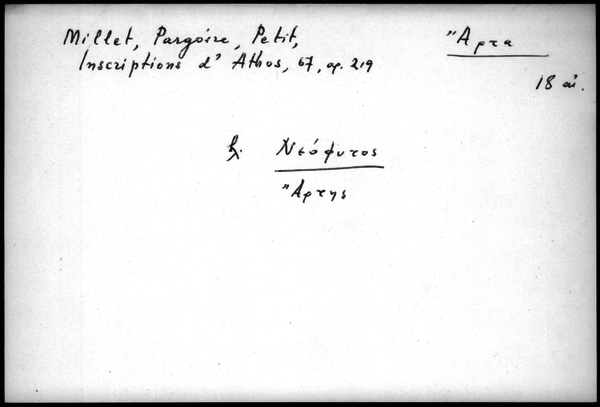 Millet, Pargoire, Petit,
Inscriptions d' Athos, 67, ap. 219
Ἄρτα
18 αἰ.
Νεόφυτος
Ἄρτης